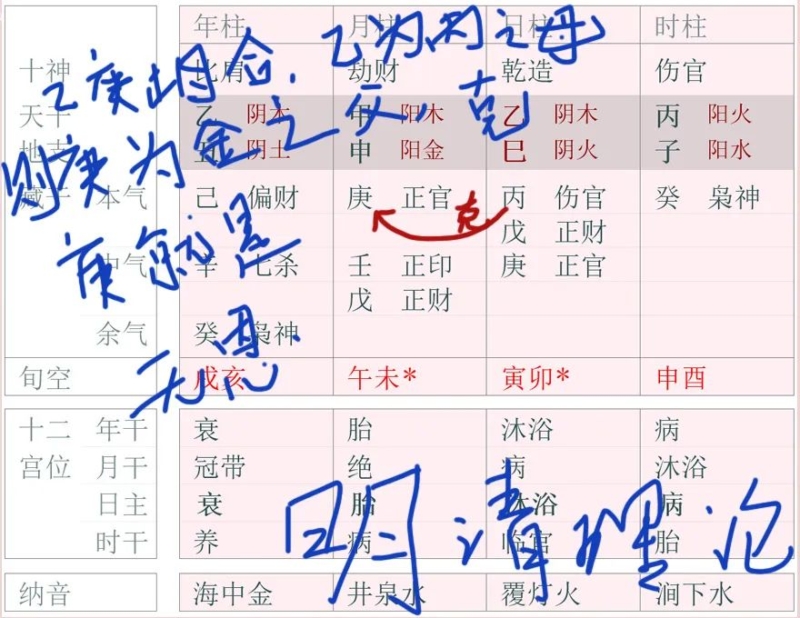 年柱 月柱 日柱 时柱
十神 比肩 劫财 乾造 伤官
天干 乙 阴木 甲 阳木 乙 阴木 丙 阳火
地支 丑 阴土 申 阳金 巳 阴火 子 阳水
藏干 本气 己 偏财 庚 正官 丙 伤官 癸 枭神
戊 正财
中气 辛 七杀 壬 正印 庚 正官
戊 正财
余气 癸 枭神
旬空 戌亥 午未* 寅卯* 申酉
十二 年干 衰 胎 沐浴 病
宫位 月干 冠带 绝 病 沐浴
日主 衰 胎 沐浴 病
时干 养 病 临官 胎
纳音 海中金 井泉水 覆灯火 涧下水
乙庚相合，乙为丙之母
则庚为金之父，克
庚就是
无恩
克
明清理论